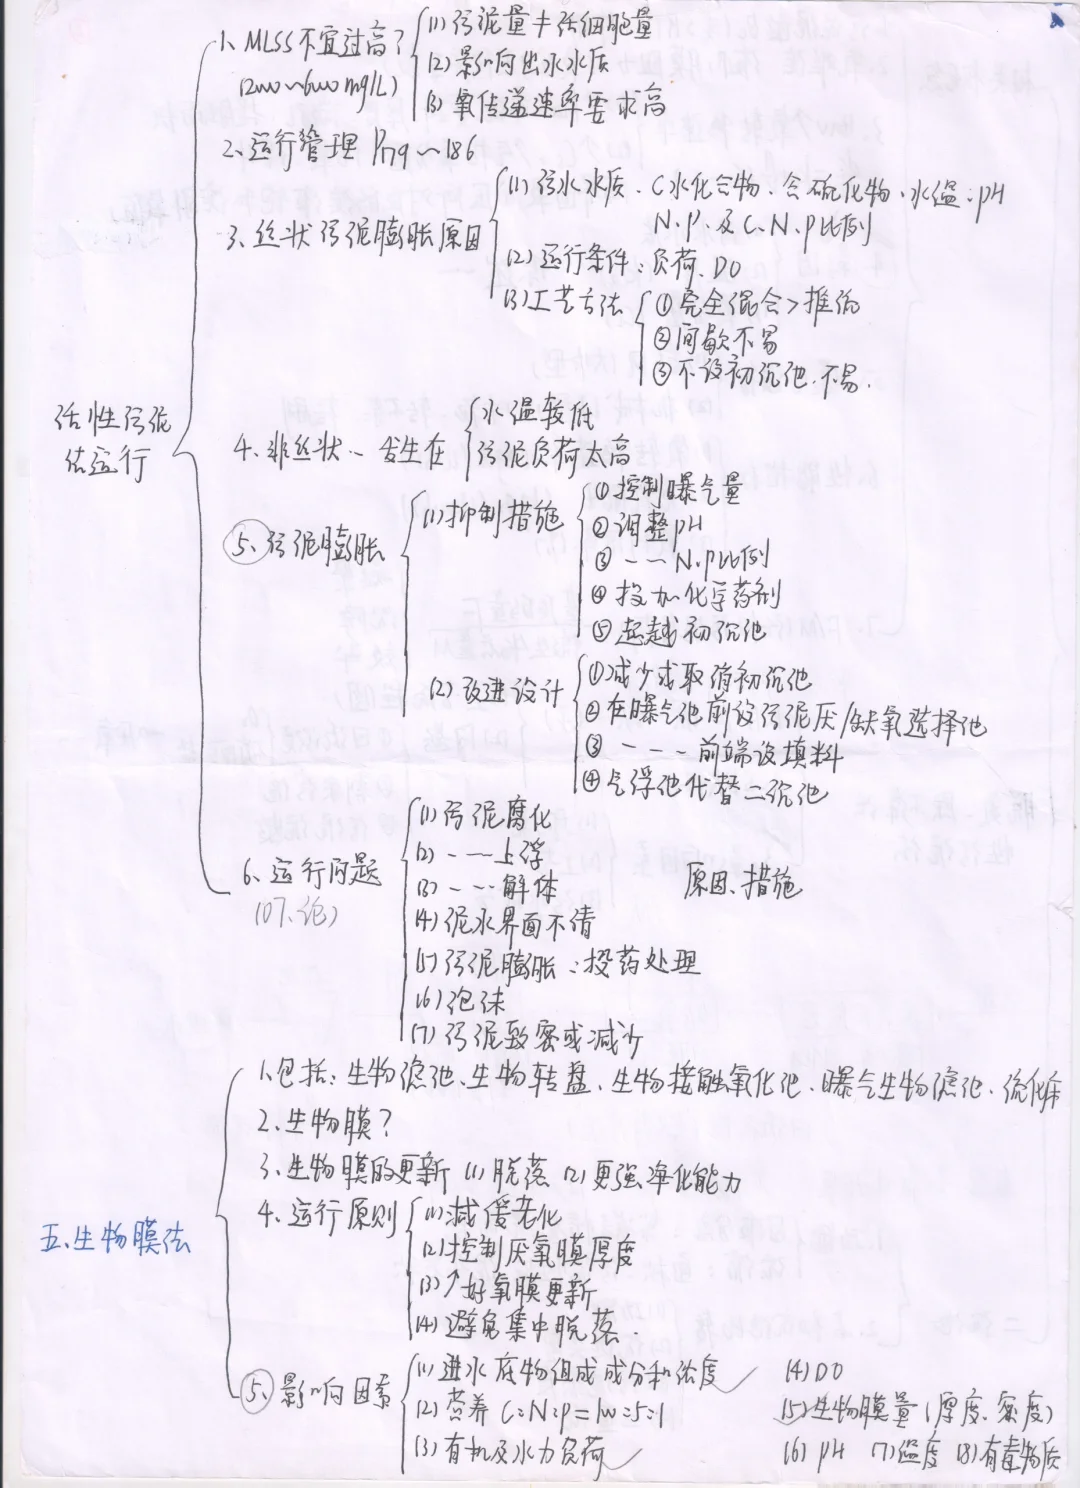 活性污泥
法运行
1、MLSS不宜过高？
(2000~6000mg/L)
(1)污泥量≠活细胞量
(2)影响出水水质
(3)氧传递速率要求高
2、运行管理 P179~186
3、丝状污泥膨胀原因
(1)污水水质、C水化合物、含硫化物、水温；pH
N、P、及C、N、P比例
(2)运行条件：负荷、DO
(3)工艺方法
①完全混合>推流
②间歇不易
③不设初沉池、不易.
4、非丝状-- 发生在
水温较低
污泥负荷太高
⑤、污泥膨胀
(1)抑制措施
①控制曝气量
②调整pH
③ --- N、P比例
④投加化学药剂
⑤超越初沉池
(2)改进设计
①减少或取消初沉池
②在曝气池前设污泥厌/缺氧选择池
③ ---- 前端设填料
④气浮池代替二沉池
6、运行问题
(07、论)
(1)污泥腐化
(2)---上浮
(3)---解体
(4)泥水界面不清
(5)污泥膨胀：投药处理
(6)泡沫
(7)污泥致密或减少
原因、措施
五、生物膜法
1、包括：生物滤池、生物转盘、生物接触氧化池、曝气生物滤池、流化床
2、生物膜？
3、生物膜的更新 (1)脱落 (2)更强净化能力
4、运行原则
(1)减缓老化
(2)控制厌氧膜厚度
(3)↑好氧膜更新
(4)避免集中脱落.
⑤、影响因素
(1)进水底物组成成分和浓度 ✓
(2)营养 C:N:P=100:5:1
(3)有机及水力负荷 ✓
(4)DO
(5)生物膜量(厚度、密度)
(6)pH (7)温度 (8)有毒物质